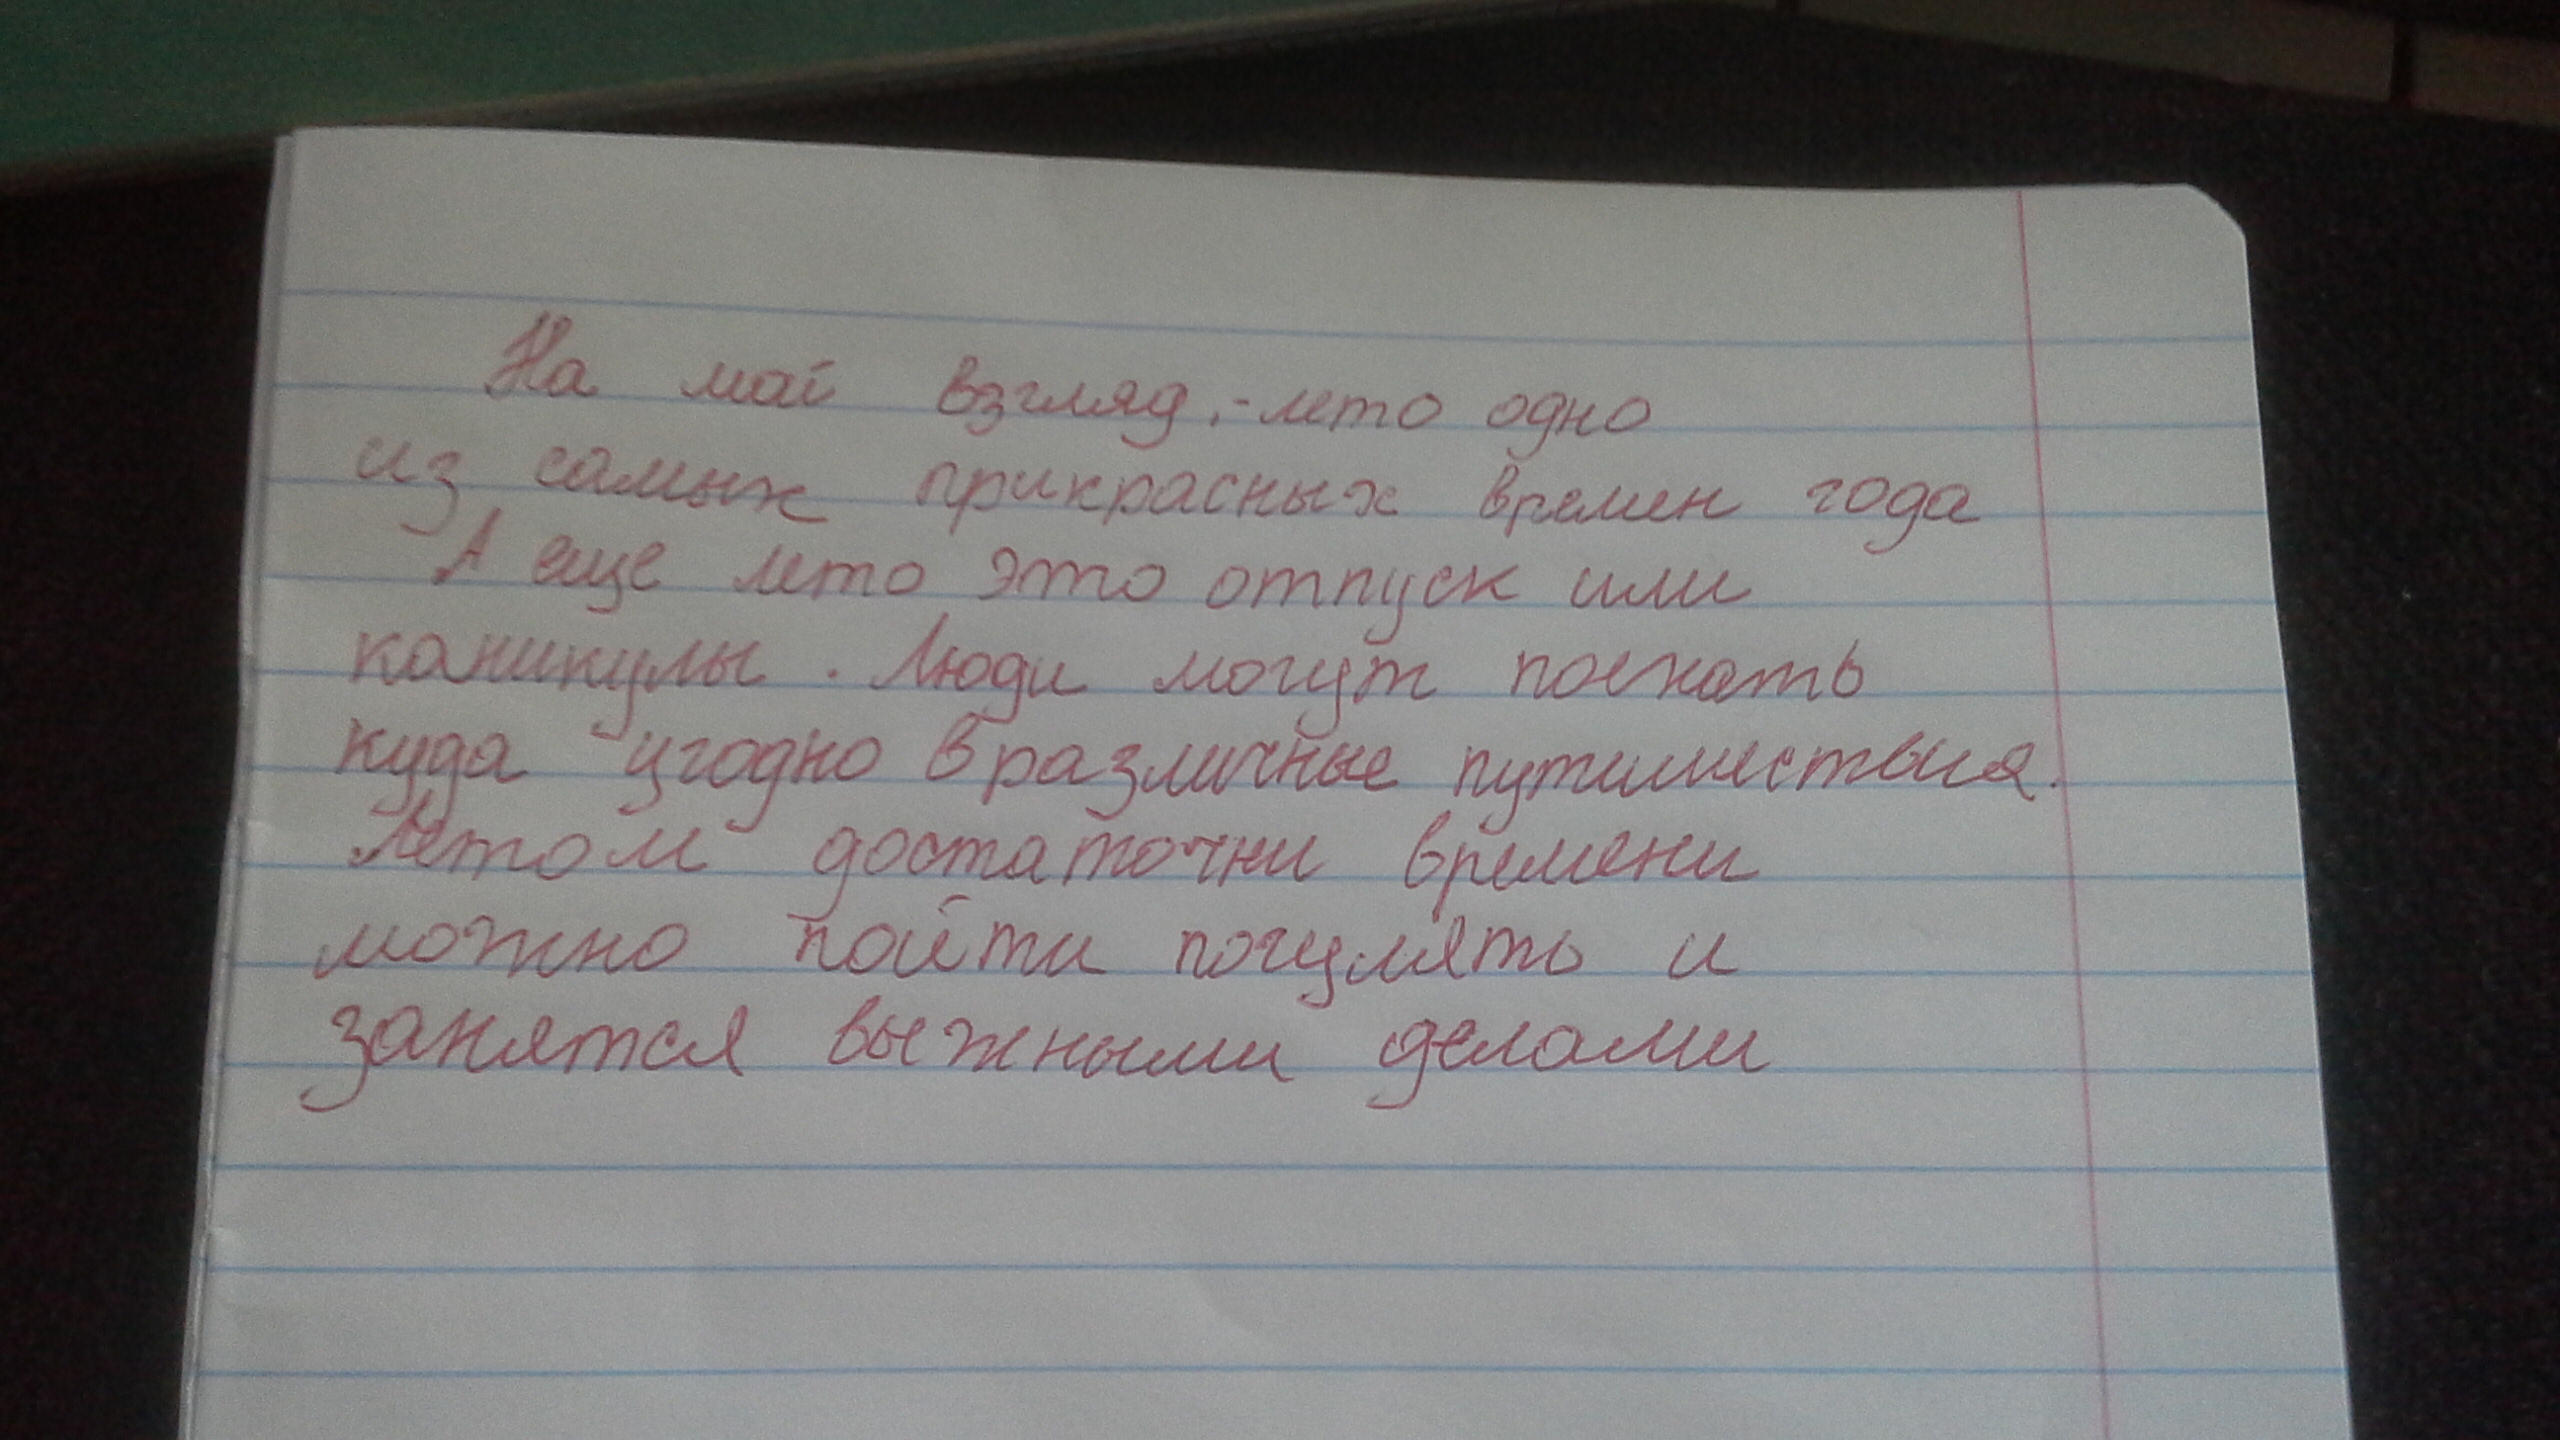 На май взгляд,-лето одно
из самых прикрасных времен года
А еще лето это отпуск или
каникулы. Люди могут поехать
куда угодно в различные путишествия.
Летом достаточни времени
можно пойти погулять и
занятся выжными делами